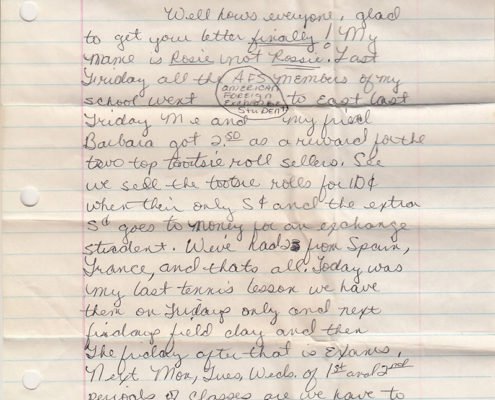 Well hows everyone, glad
to get your letter finally! My
name is Rosie not Rossie. Last
Friday all the AFS members of my
AMERICAN
FOREIGN
EXCHANGE
STUDENT
school went to East last
Friday Me and my friend
Barbara got 2.50 as a reward for the
two top tootsie roll sellers. See
we sell the tootsie rolls for 10¢
when their only 5¢ and the extra
5¢ goes to money for an exchange
student. We've had 2 from Spain,
France, and thats all. Today was
my last tennis lesson we have
them on Fridays only and next
friday field day and then
The friday after that is Exams.
Next Mon, Tues, Weds. of 1st and 2nd
periods of classes are we have to